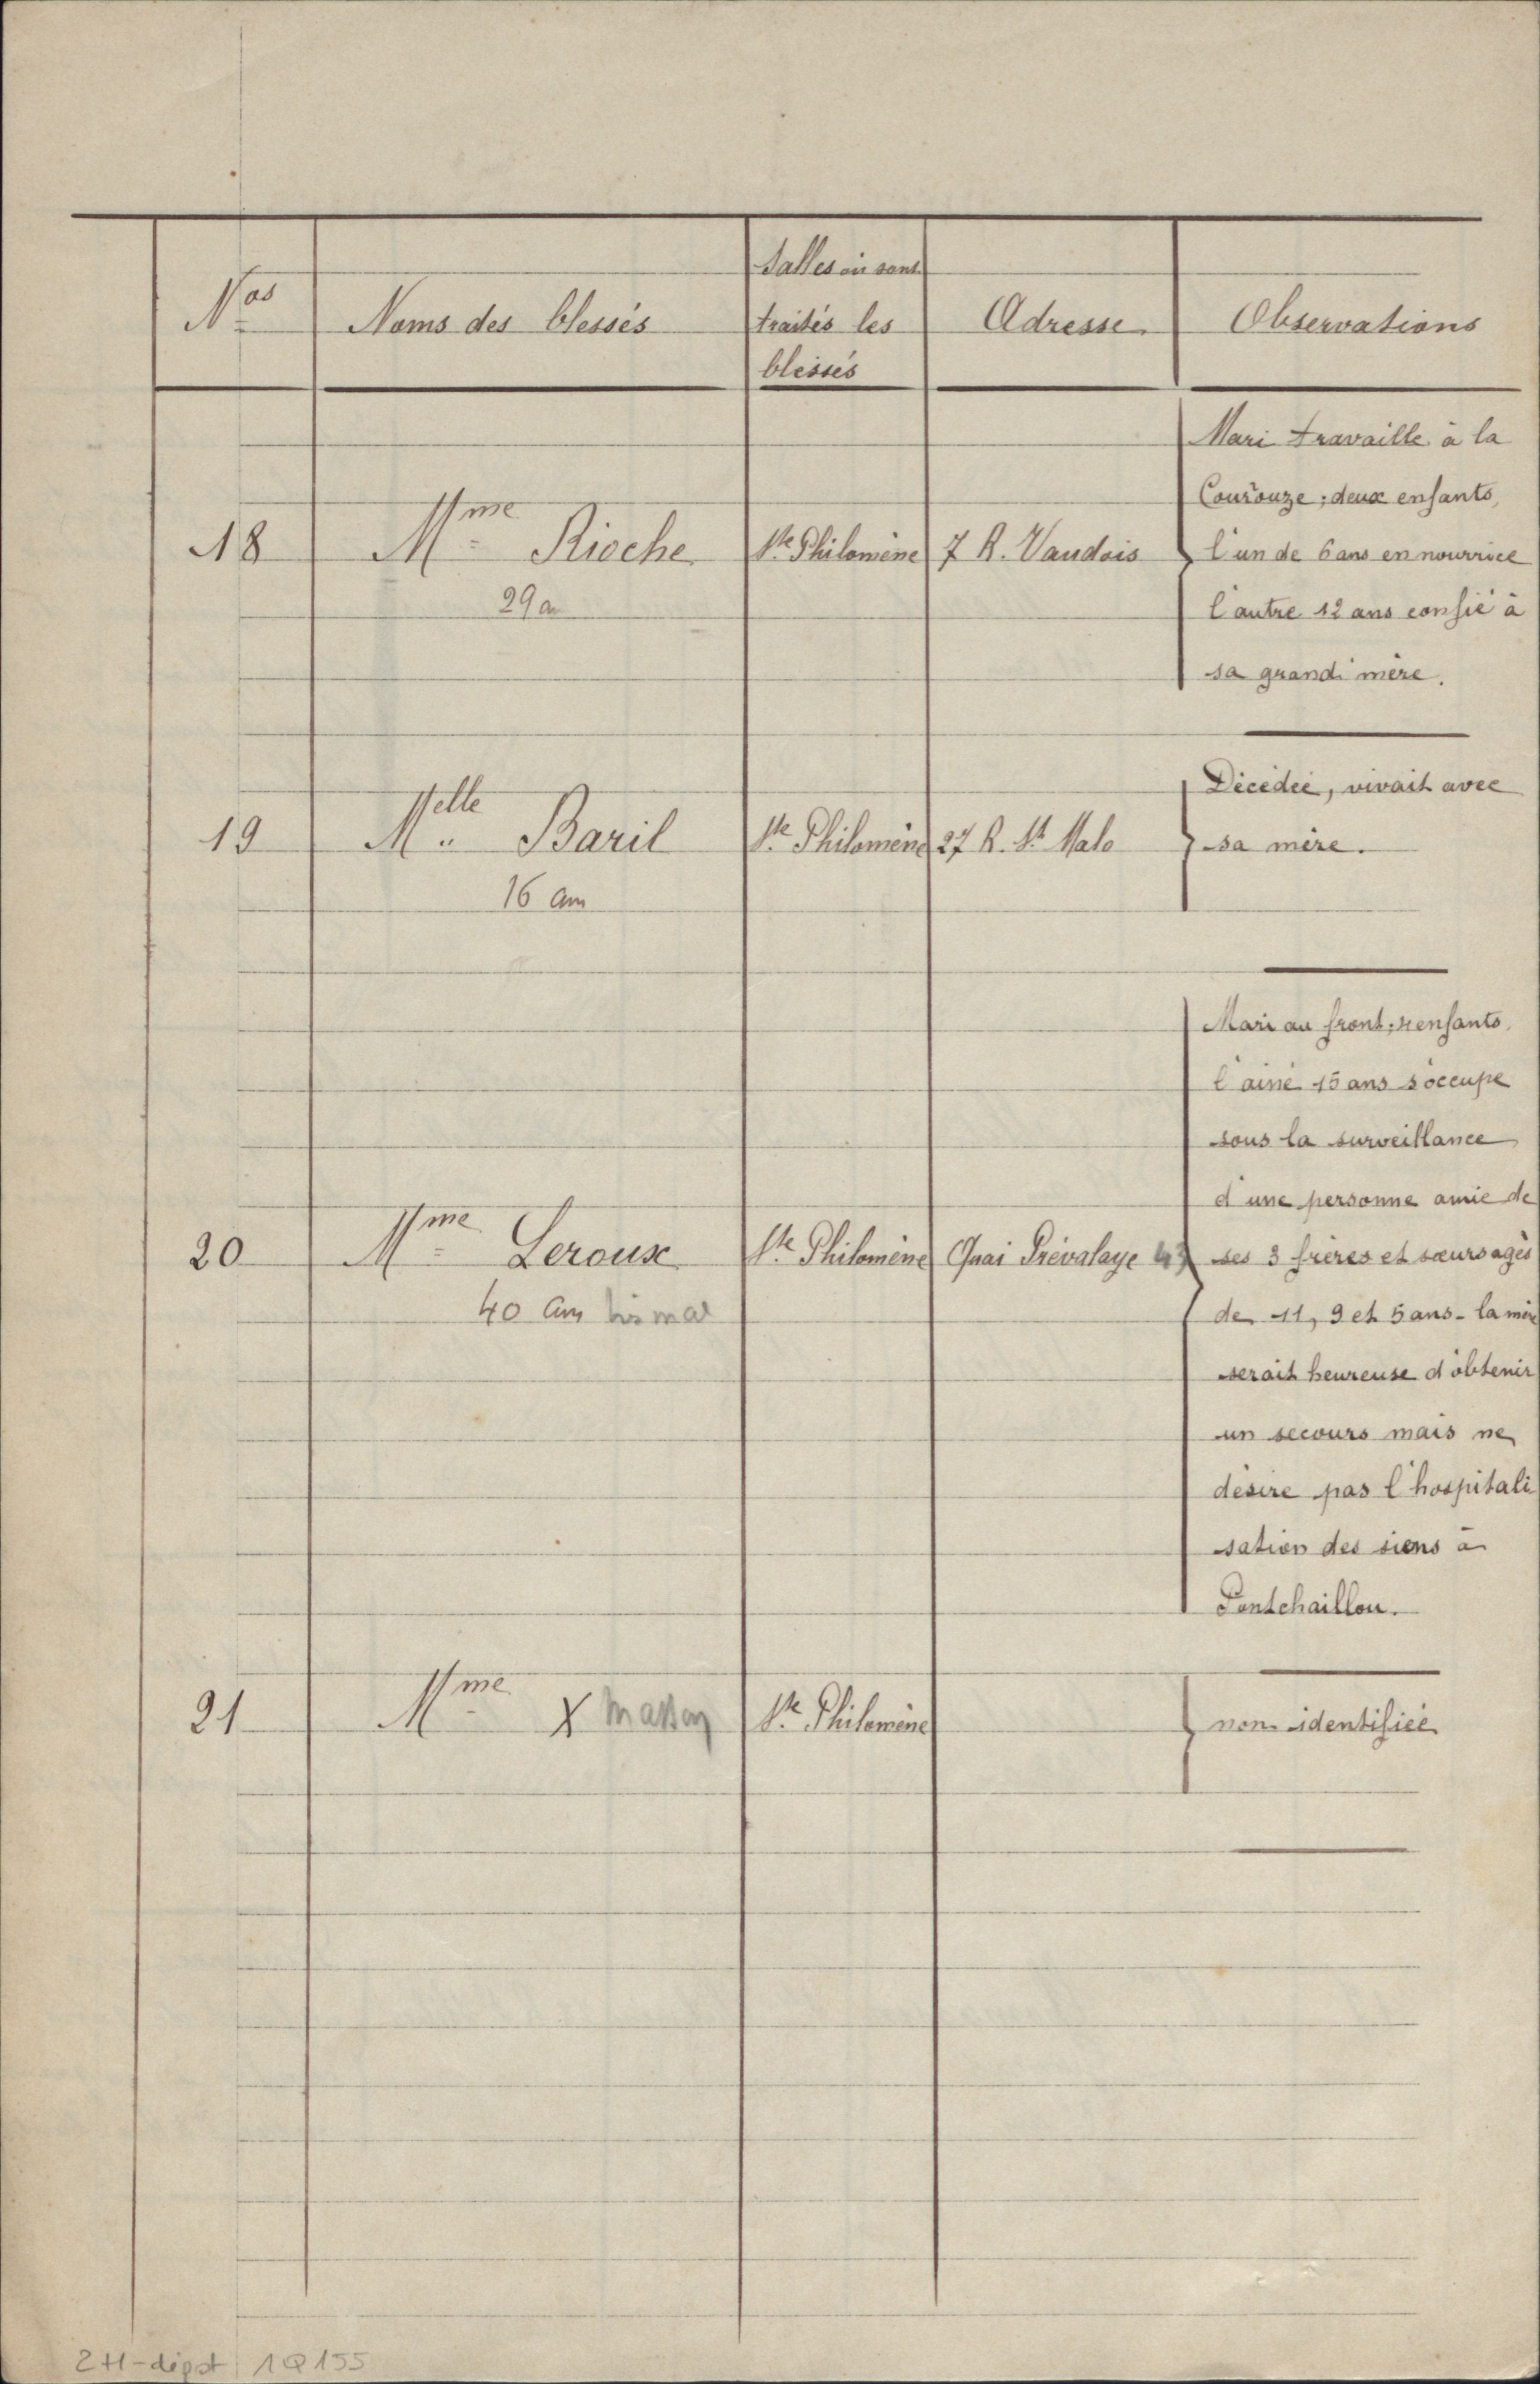 Nos
Noms des blessés
Salles où sont
traités les
blessés
Adresse
Observations
18
Mme Rioche
29 a
Ste Philomène
7 R. Vaudois
Mari travaille à la
Courouze; deux enfants,
l'un de 6 ans en nourrice
l'autre 12 ans confié à
sa grand'mère.
19
Melle Baril
16 ans
Ste Philomène
27 R. St Malo
Décédée, vivait avec
sa mère.
20
Mme Leroux
40 ans très mal
Ste Philomène
Quai Prévalaye
Mari au front; 4 enfants,
l'ainé 15 ans s'occupe
sous la surveillance
d'une personne amie de
ses 3 frères et sœurs agés
de 11, 9 et 5 ans - la mère
serait heureuse d'obtenir
un secours mais ne
désire pas l'hospitali
sation des siens à
Pontchaillou.
21
Mme X Masson
Ste Philomène
non identifiée
2H-dépôt 1Q155